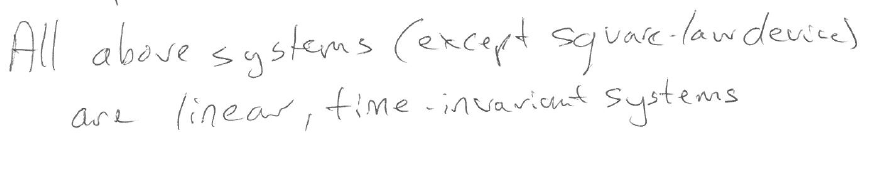 All above systems (except square-law device)
are linear, time-invariant systems